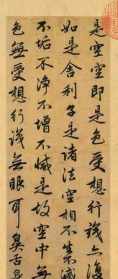 是空空即是色受想行識亦復
如是舍利子是諸法空相不生滅
不垢不淨不增不減是故空中無
色無受想行識無眼耳鼻舌